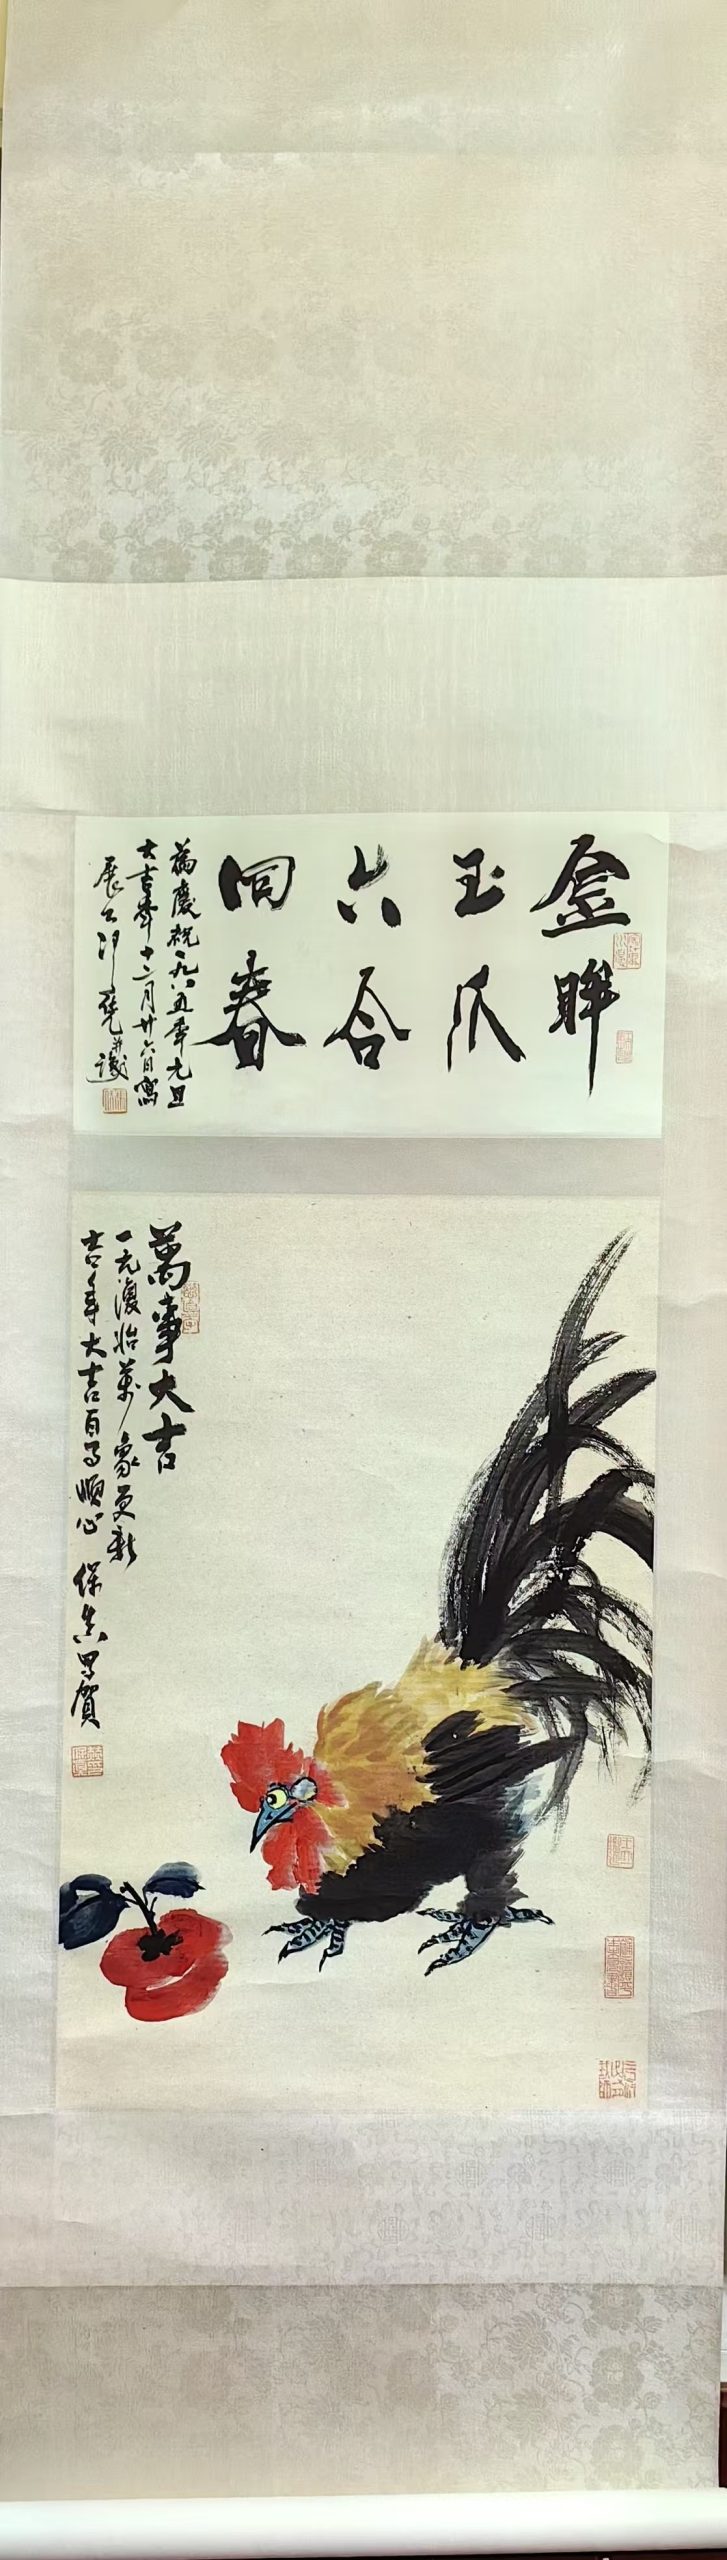 金眸
玉爪
六合
回春
為慶祝一九八五年元旦
大吉年十二月廿六日寫
展公沖堯并識
萬事大吉
一元復始萬象更新
吉年大吉百事順心 保真畧賀